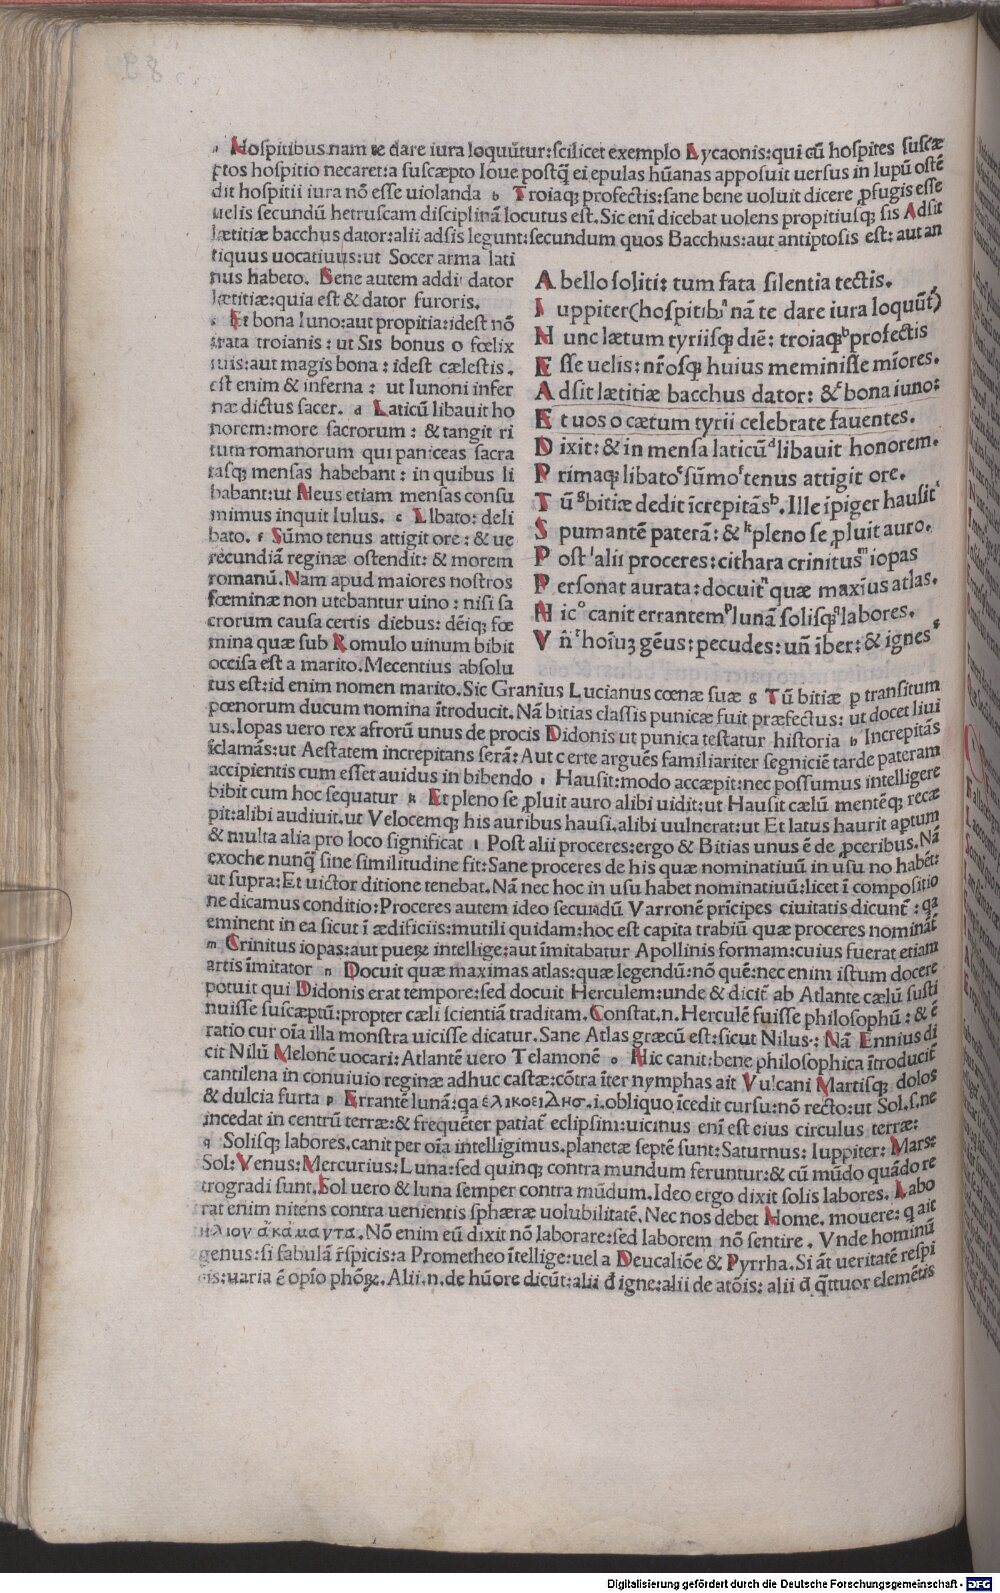 a Hospitibus nam te dare iura loquũtur:scilicet exemplo Lycaonis:qui cũ hospites suscæ
ptos hospitio necaret:a suscæpto Ioue postq̃ ei epulas hũanas apposuit uersus in lupũ ostẽ
dit hospitii iura nõ esse uiolanda b Troiaq; profectis:sane bene uoluit dicere ꝓfugis esse
uelis secundũ hetruscam disciplinã locutus est. Sic eni dicebat uolens propitiusq; sis Adsit
lætitiæ bacchus dator:alii adsis legunt:secundum quos Bacchus:aut antiptosis est: aut an
tiquus uocatiuus:ut Socer arma lati
nus habeto. Bene autem addi dator
lætitiæ:quia est & dator furoris.
c Et bona Iuno:aut propitia:idest nõ
irata troianis: ut Sis bonus o fœlix
tuis:aut magis bona: idest cælestis.
est enim & inferna: ut Iunoni infer
næ dictus sacer. d Laticũ libauit ho
norem:more sacrorum: & tangit ri
tum romanorum qui paniceas sacra
tasq; mensas habebant: in quibus li
babant:ut Heus etiam mensas consu
mimus inquit Iulus. e Libato: deli
bato. f Sũmo tenus attigit ore: & ue
recundiã reginæ ostendit: & morem
romanũ. Nam apud maiores nostros
fœminæ non utebantur uino: nisi sa
crorum causa certis diebus: dẽiq; fœ
mina quæ sub Romulo uinum bibit
occisa est a marito. Mecentius absolu
A bello soliti: tum fata silentia tectis.
I uppiter(hospitibꝰ nã te dare iura loquũt̃)
H unc lætum tyriisq; diẽ: troiaq; profectis
E sse uelis: nr̃osq; huius meminisse mĩores.
A dsit lætitiæ bacchus dator: & bona iuno:
E t uos o cætum tyrii celebrate fauentes.
D ixit: & in mensa laticũ libauit honorem.
P rimaq; libato sũmo tenus attigit ore.
T ũ bitiæ dedit ĩcrepitãs. Ille ĩpiger hausit
S pumantẽ paterã: & pleno se ꝓluit auro.
P ost alii proceres: cithara crinitus iopas
P ersonat aurata: docuit quæ maxĩus atlas.
H ic canit errantem lunã solisq; labores.
V ñ hoĩuʒ gẽus: pecudes: uñ ĩber: & ignes
tus est:id enim nomen marito. Sic Granius Lucianus cœnæ suæ g Tũ bitiæ p transitum
pœnorum ducum nomina ĩtroducit. Nã bitias classis punicæ fuit præfectus: ut docet liui
us. Iopas uero rex afrorũ unus de procis Didonis ut punica testatur historia h Increpitãs
ĩclamãs:ut Aestatem increpitans serã: Aut certe arguẽs familiariter segniciẽ tarde pateram
accipientis cum esset auidus in bibendo i Hausit:modo accæpit:nec possumus intelligere
bibit cum hoc sequatur k Et pleno se ꝓluit auro alibi uidit:ut Hausit cælũ mentẽq; recæ
pit:alibi audiuit.ut Velocemq; his auribus hausi.alibi uulnerat:ut Et latus haurit aptum
& multa alia pro loco significat l Post alii proceres:ergo & Bitias unus ẽ de ꝓceribus. Nã
exoche nunq̃ sine similitudine fit: Sane proceres de his quæ nominatiuũ in usu no habẽt:
ut supra: Et uictor ditione tenebat. Nã nec hoc in usu habet nominatiuũ: licet ĩ compositio
ne dicamus conditio: Proceres autem ideo secundũ Varronẽ prĩcipes ciuitatis dicunt̃: qa
eminent in ea sicut ĩ ædificiis:mutili quidam:hoc est capita trabiũ quæ proceres nominãt̃
m Crinitus iopas:aut pueꝝ intellige:aut ĩmitabatur Apollinis formam:cuius fuerat etiam
artis ĩmitator n Docuit quæ maximas atlas:quæ legendũ:nõ quẽ:nec enim istum docere
potuit qui Didonis erat tempore:sed docuit Herculem:unde & dicit̃ ab Atlante cælũ susti
nuisse suscæptũ:propter cæli scientiã traditam. Constat.n. Herculẽ fuisse philosophũ: & ẽ
ratio cur oĩa illa monstra uicisse dicatur. Sane Atlas græcũ est:sicut Nilus: Nã Ennius di
cit Nilũ Melonẽ uocari: Atlantẽ uero Telamonẽ o Hic canit:bene philosophica ĩtroducit̃
cantilena in conuiuio reginæ adhuc castæ:cõtra ĩter nymphas ait Vulcani Martisq; dolos
& dulcia furta p Errantẽ lunã: qa ελικοειΔησ.i.obliquo ĩcedit cursu:nõ recto:ut Sol.s.ne
incedat in centrũ terræ:& frequẽter patiat̃ eclipsim:uicinus eni est eius circulus terræ:
q Solisq; labores.canit per oĩa intelligimus.planetæ septẽ sunt:Saturnus: Iuppiter: Mars:
Sol: Venus: Mercurius: Luna: sed quinq; contra mundum feruntur:& cũ mũdo quãdo re
trogradi sunt. Sol uero & luna semper contra mũdum. Ideo ergo dixit solis labores. Labo
rat enim nitens contra uenientis sphæræ uolubilitatẽ. Nec nos debet Home. mouere: q ait
ηλιον ἀκάμαντα. Nõ enim eũ dixit nõ laborare:sed laborem nõ sentire. Vnde hominũ
genus: si fabulã r̃spicis: a Prometheo ĩtellige:uel a Deucaliõe & Pyrrha. Si ãt ueritatẽ respi
cis:uaria ẽ opĩo phõꝝ. Alii.n.de hũore dicũt:alii đ igne:alii de atõis: alii đ q̃ttuor elemẽtis
Digitalisierung gefördert durch die Deutsche Forschungsgemeinschaft - DFG